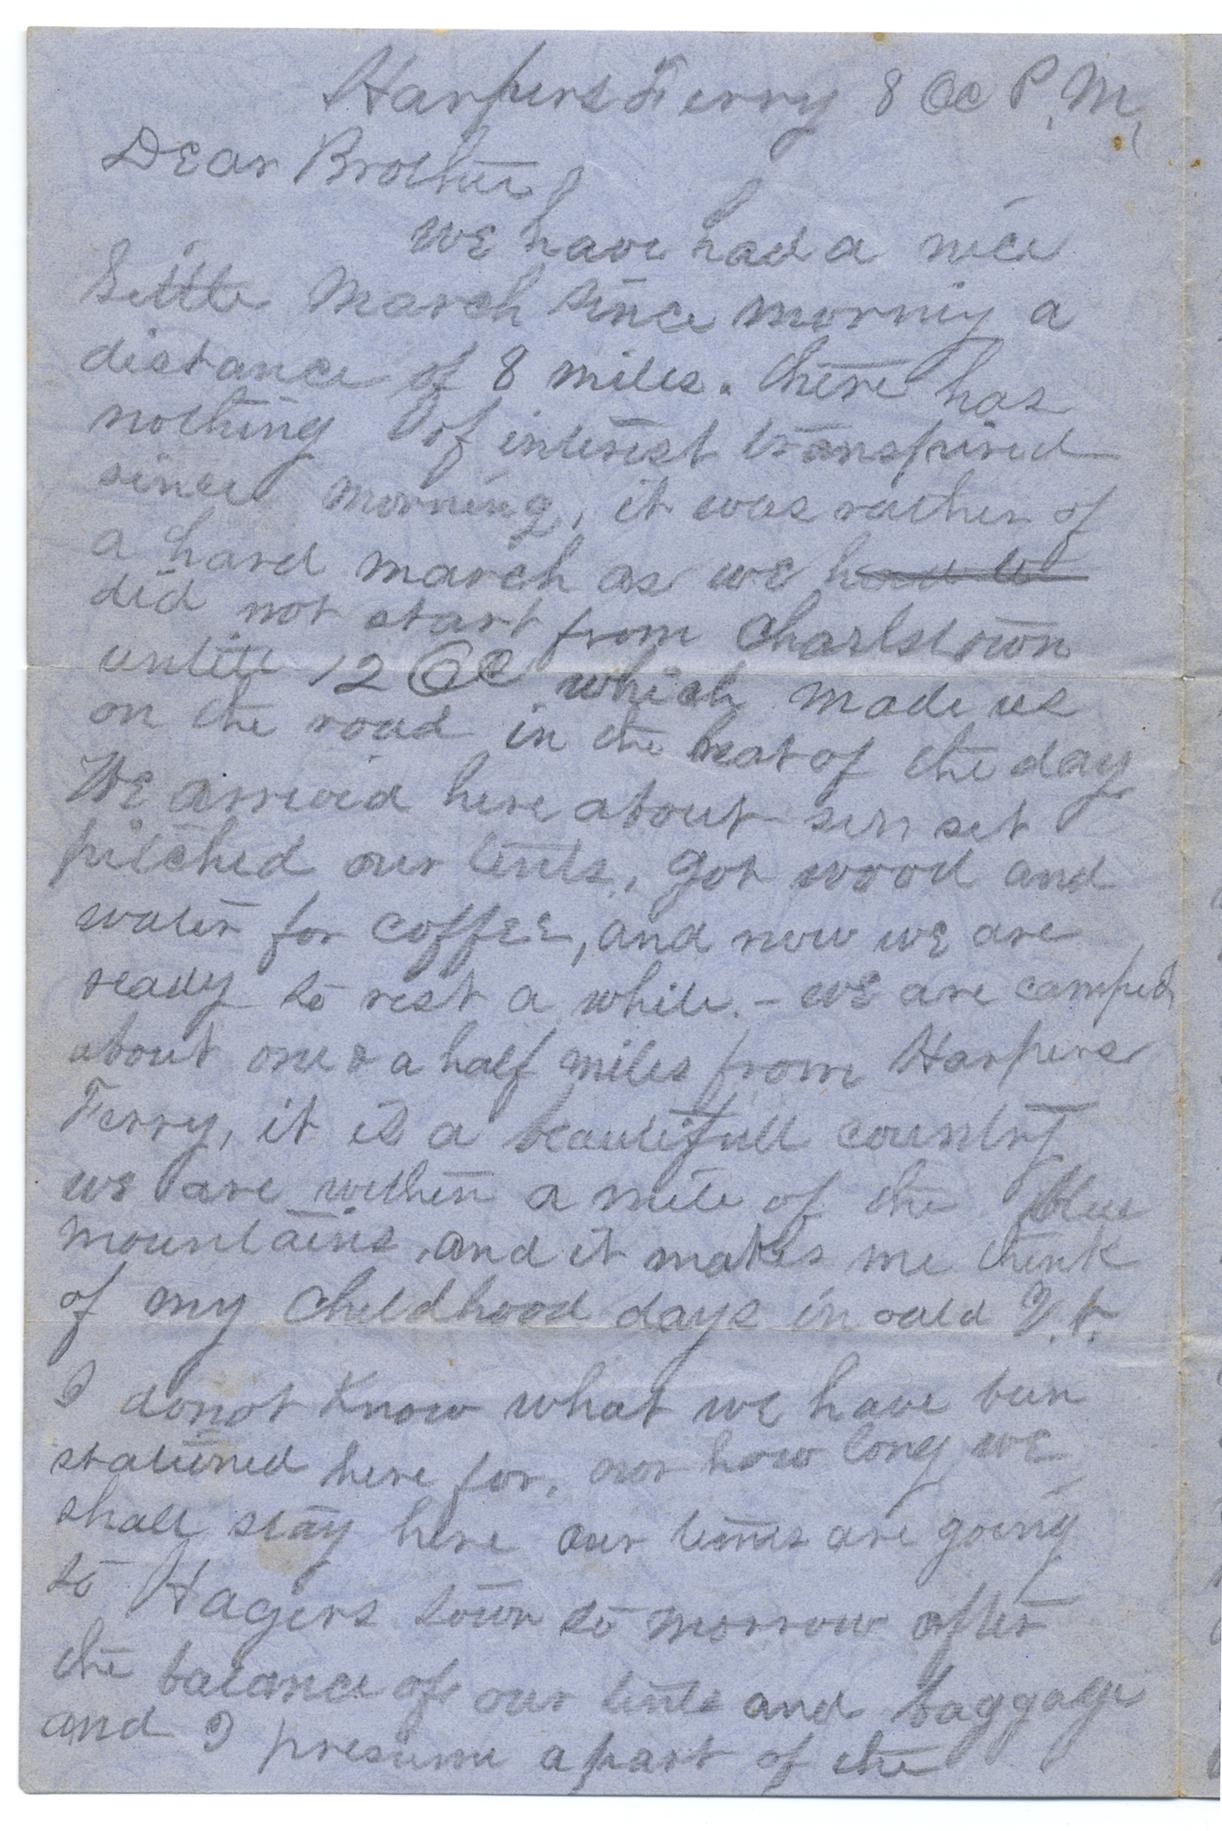 Harpers Ferry 8 Oc P.M.
Dear Brother
We have had a nice
little March since morning a
distance of 8 miles. there has
nothing of interest transpired
since morning, it was rather of
a hard march as we had w
did not start from Charlstown
untill 12 Oc which made us
on the road in the heat of the day
We arrived here about sun set
pitched our tents, got wood and
water for coffee, and now we are
ready to rest a while. - we are camped
about one & a half miles from Harpers
Ferry, it is a beautifull country
we are within a mile of the blue
mountains, and it makes me think
of my childhood days in ould V.t.
I donot know what we have bun
statiined here for, nor how long we
shall stay here our teams are going
to Hagers town to morrow after
the balance of our tents and baggage
and I presume apart of the